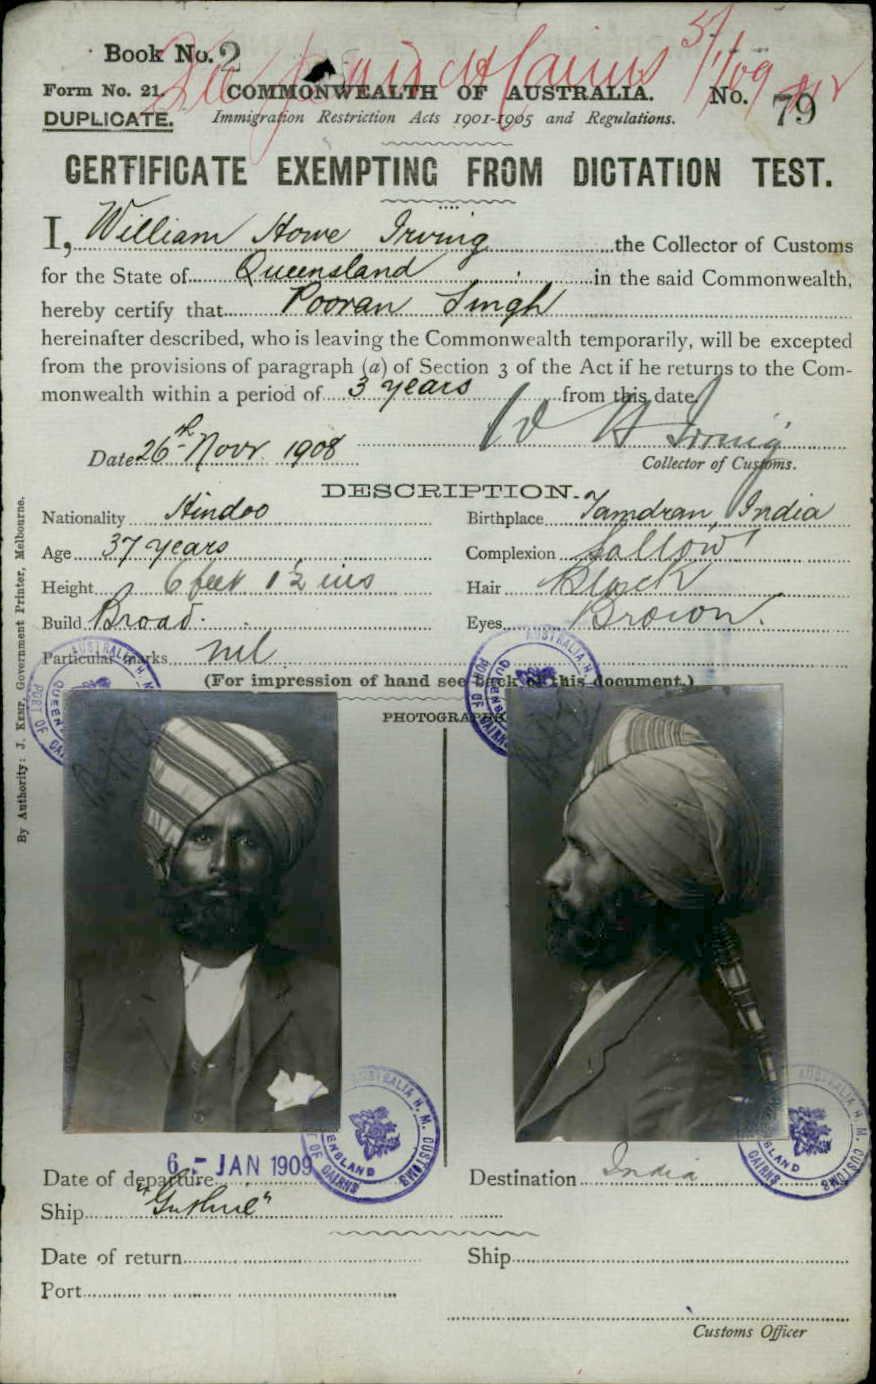 Book No. 2
Form No. 21. COMMONWEALTH OF AUSTRALIA. No. 79
DUPLICATE. Immigration Restriction Acts 1901-1905 and Regulations.
CERTIFICATE EXEMPTING FROM DICTATION TEST.
I, William Howe Irving the Collector of Customs
for the State of Queensland in the said Commonwealth,
hereby certify that Pooran Singh
hereinafter described, who is leaving the Commonwealth temporarily, will be excepted
from the provisions of paragraph (a) of Section 3 of the Act if he returns to the Com-
monwealth within a period of 3 years from this date.
W H Irving
Date 26th Novr 1908
Collector of Customs.
DESCRIPTION.
Nationality Hindoo Birthplace Tamdran, India
Age 37 years Complexion Sallow
Height 6 feet 1½ ins Hair Black
Build Broad. Eyes Brown.
Particular marks nil
(For impression of hand see back of this document.)
PHOTOGRAPHS
By Authority: J. KEMP, Government Printer, Melbourne.
Date of departure 6 - JAN 1909 Destination India
Ship "Guthrie"
Date of return Ship
Port
Customs Officer
AUSTRALIA H. M. CUSTOMS
QUEENSLAND
PORT OF CAIRNS